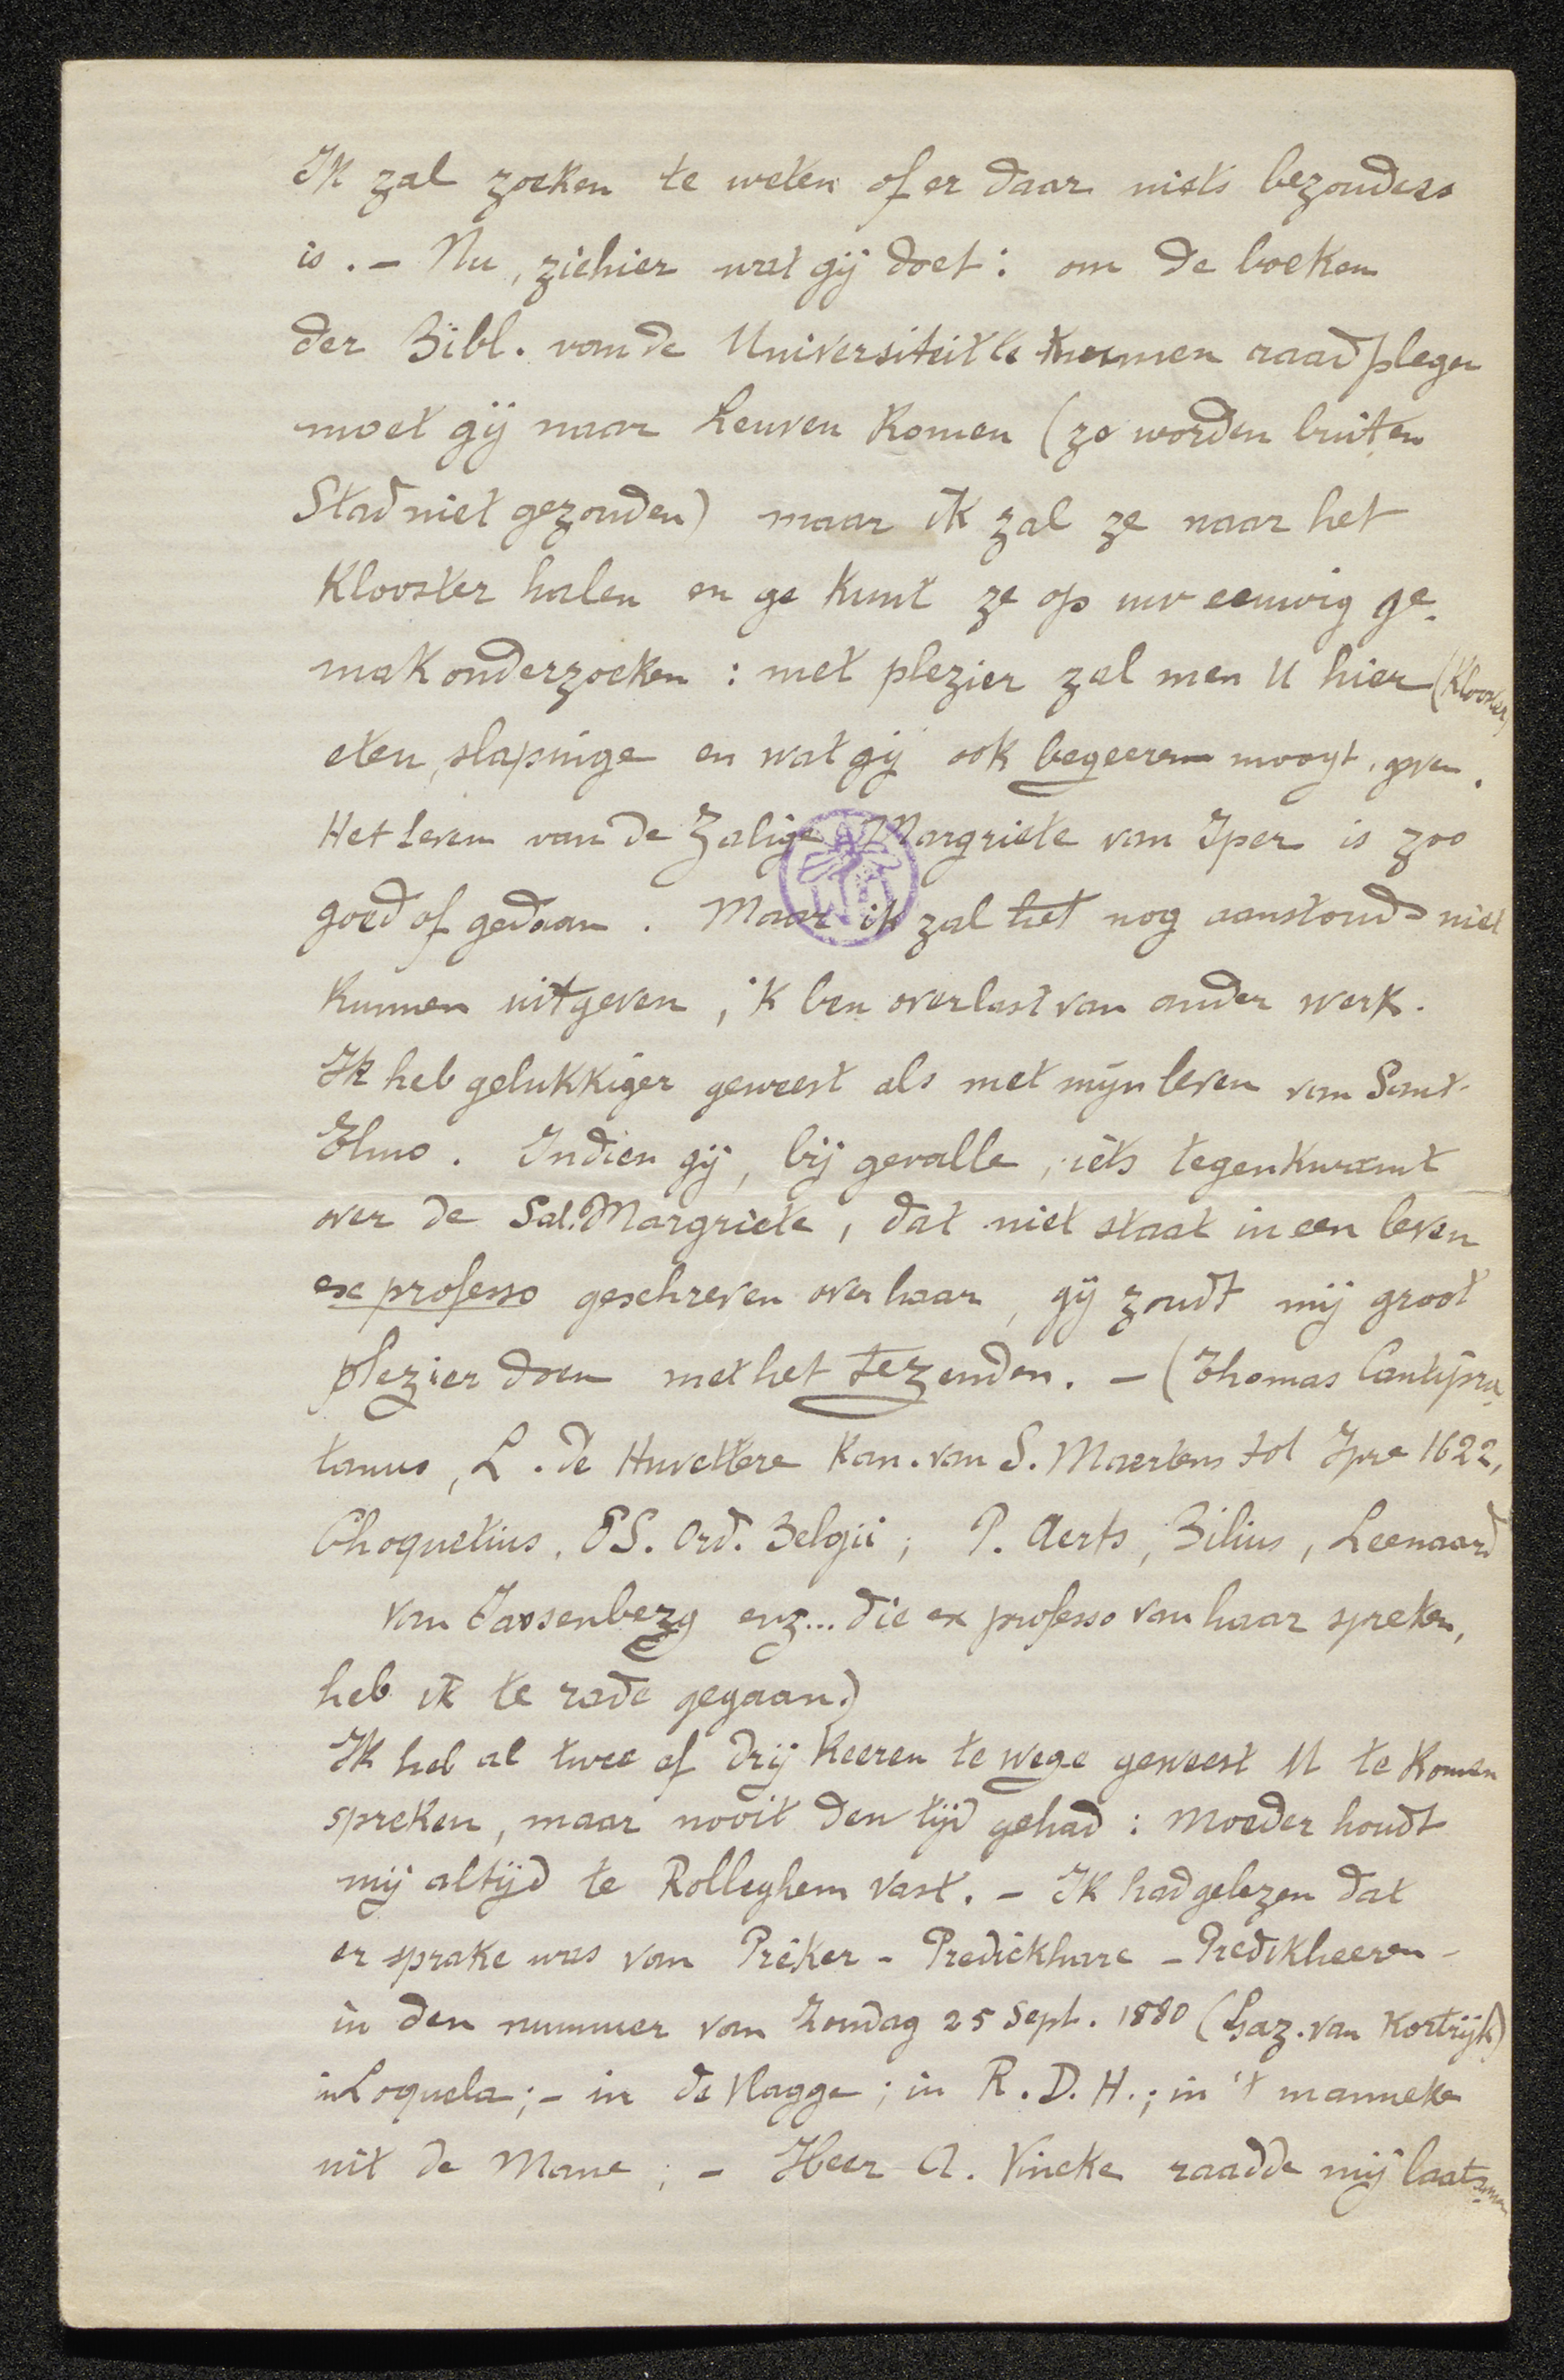 Ik zal zoeken te weten of er daar niets bezonders
is. – Nu, ziehier wat gij doet: om de boeken
der Bibl. van de Universiteit te kunnen raadplegen
moet gij naar Leuven komen (ze worden buiten
Stad niet gezonden) maar ik zal ze naar het
Klooster halen en ge kunt ze op uw eeuwig ge-
mak onderzoeken: met plezier zal men U hier (Klooster)
eten, slapinge en wat gij ook begeeren moogt, geven.
Het Leven van de Zalige Margriete van Iper is zoo
goed of gedaan. Maar ik zal het nog aanstonds niet
kunnen uitgeven, 'k ben overlast van ander werk.
Ik heb gelukkiger geweest als met mijn leven van Sant-
Elmo. Indien gij, bij gevalle, iets tegenkwamt
over de Sal. Margriete, dat niet staat in een leven
ex professo geschreven over haar, gij zoudt mij groot
plezier doen met het te zenden. – (Thomas Cantipra-
tanus, L. de Huvettere Kan. van S. Maertens tot Ipre 1622,
Choquetius, SS. Ord. Belgii; P. Aerts, Bilius, Leenaard
van Jassenberg enz... die ex professo van haar spreken,
heb ik te rade gegaan.)
Ik heb al twee of drij keeren te wege geweest U te komen
spreken, maar nooit den tijd gehad: Moeder houdt
mij altijd te Rolleghem vast. – Ik had gelezen dat
er sprake was van Prêker – Predickhare – Predikheeren –
in den nummer van Zondag 25 Sept. 1880 (Gaz. van Kortrijk)
in Loquela; – in de Vlagge; in R. D. H.; in 't manneke
uit de Mane; – Heer A. Vincke raadde mij laatst